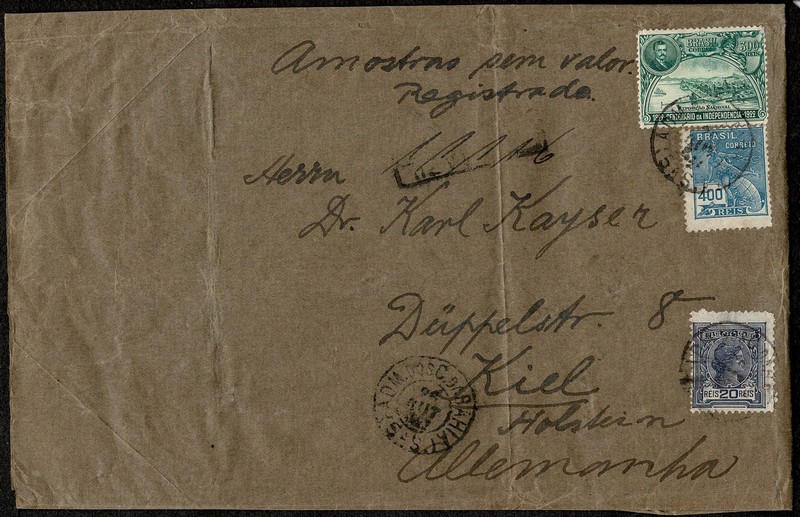 Amostras sem valor.
Registrado.
Herrn
Dr. Karl Kayser
Düppelstr. 8
Kiel
Holstein
Allemanha
BRASIL
CORREIO
300
EXPOSIÇÃO NACIONAL
1822 CENTENARIO DA INDEPENDENCIA 1922
BRASIL
CORREIO
400
REIS
REIS 20 REIS
BAHIA